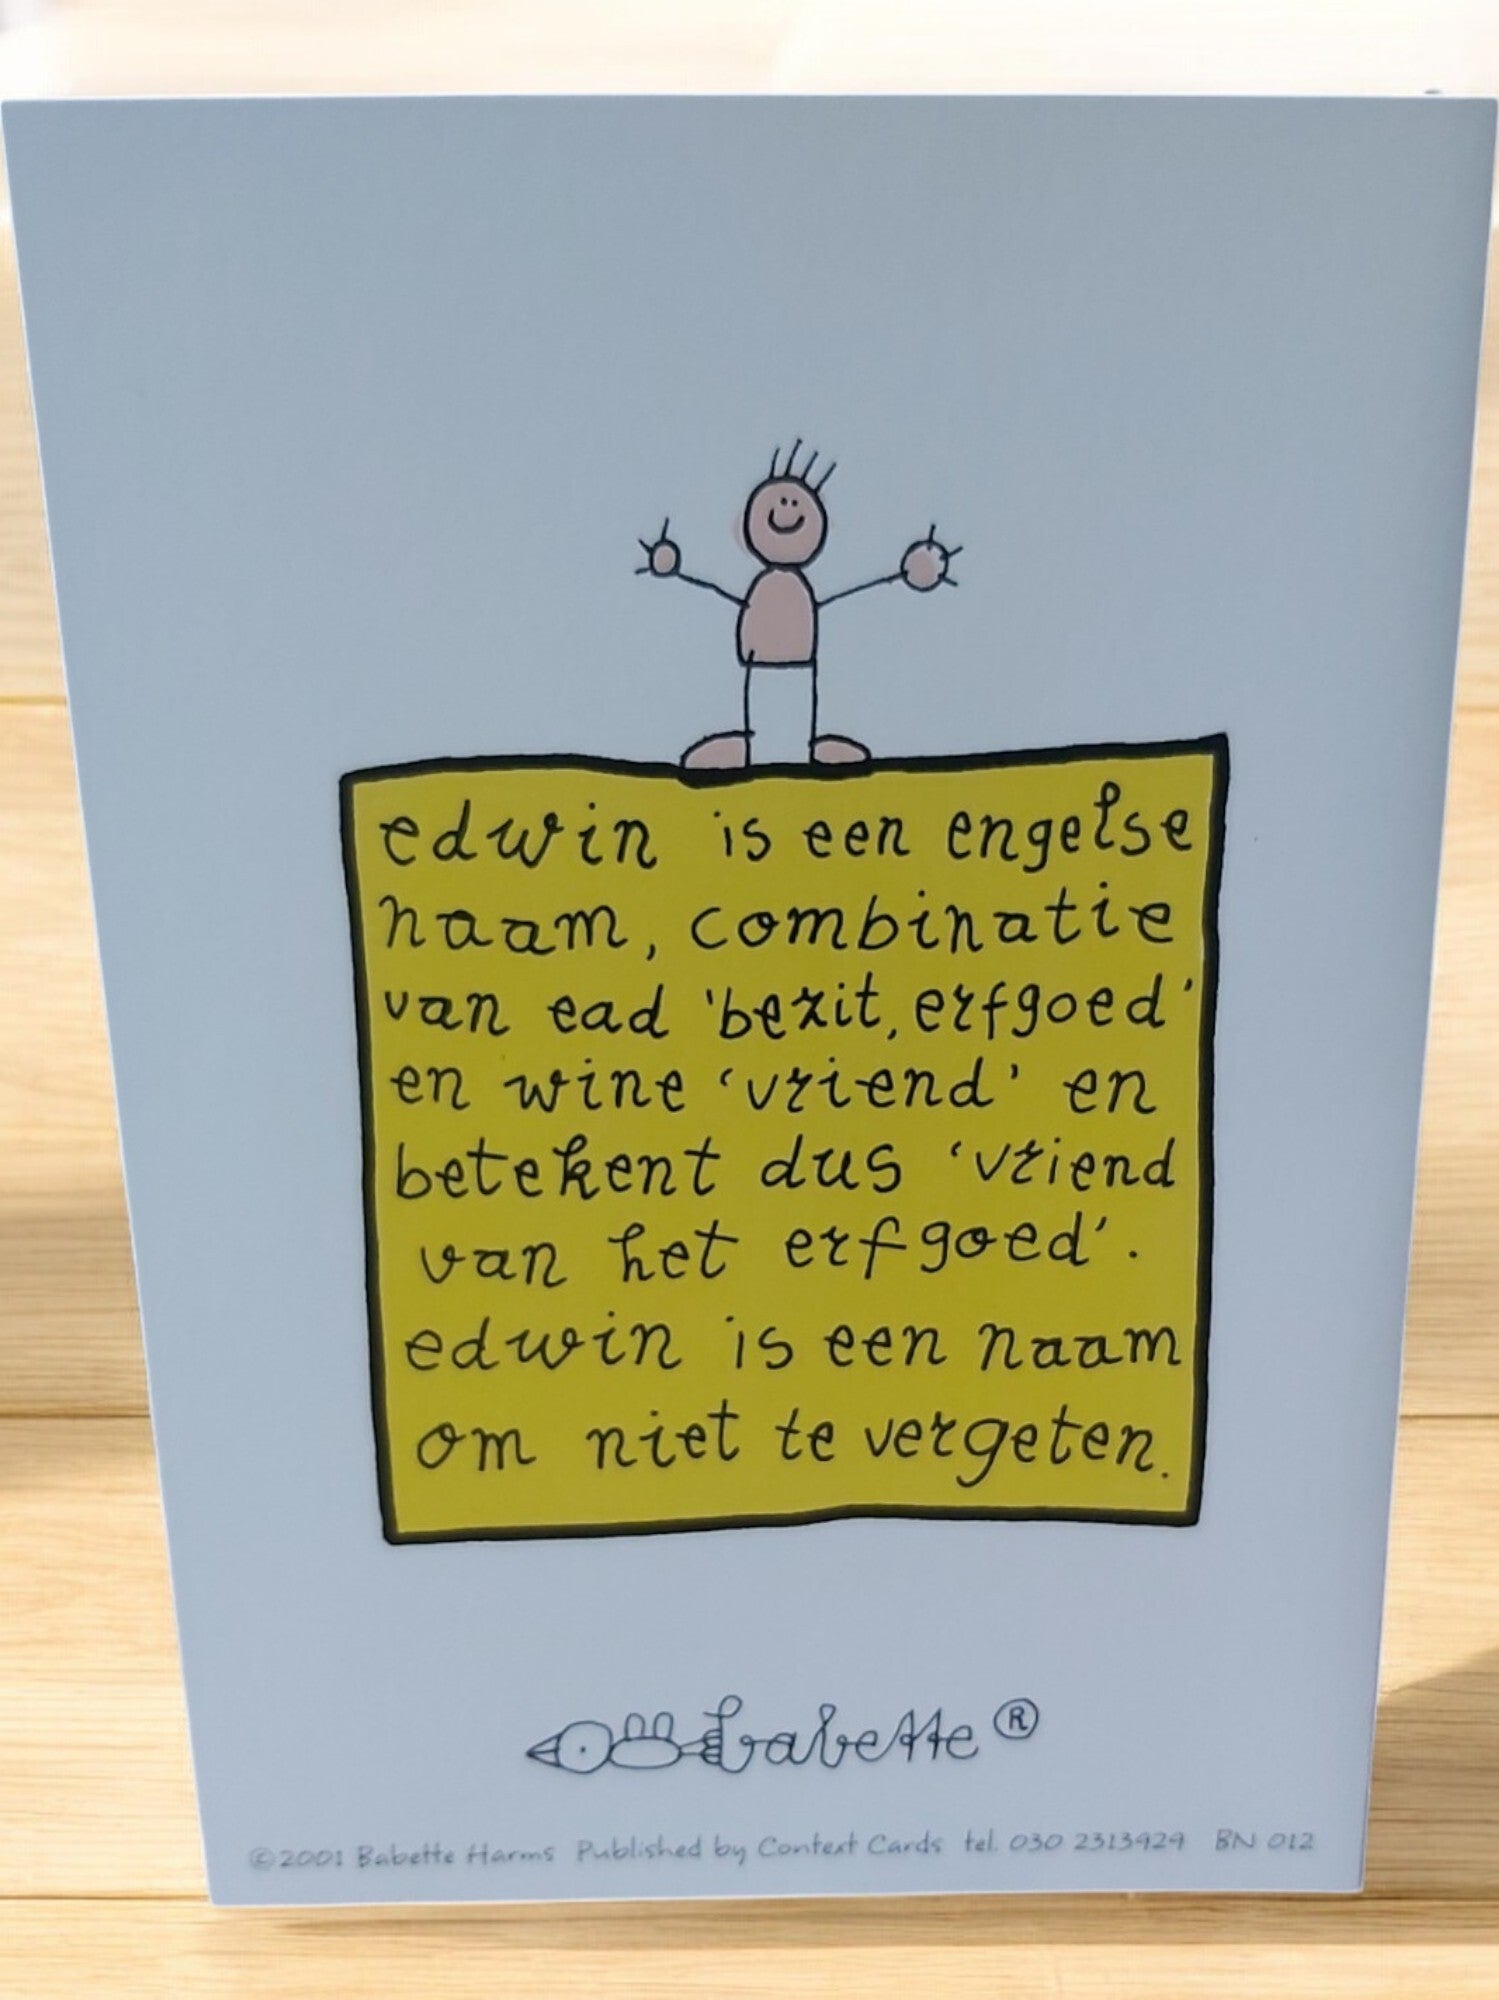 edwin is een engelse
naam, combinatie
van ead 'bezit, erfgoed'
en wine 'vriend' en
betekent dus 'vriend
van het erfgoed'.
edwin is een naam
om niet te vergeten.
babette ®
©2001 Babette Harms Published by Context Cards tel. 030 2313429 BN 012